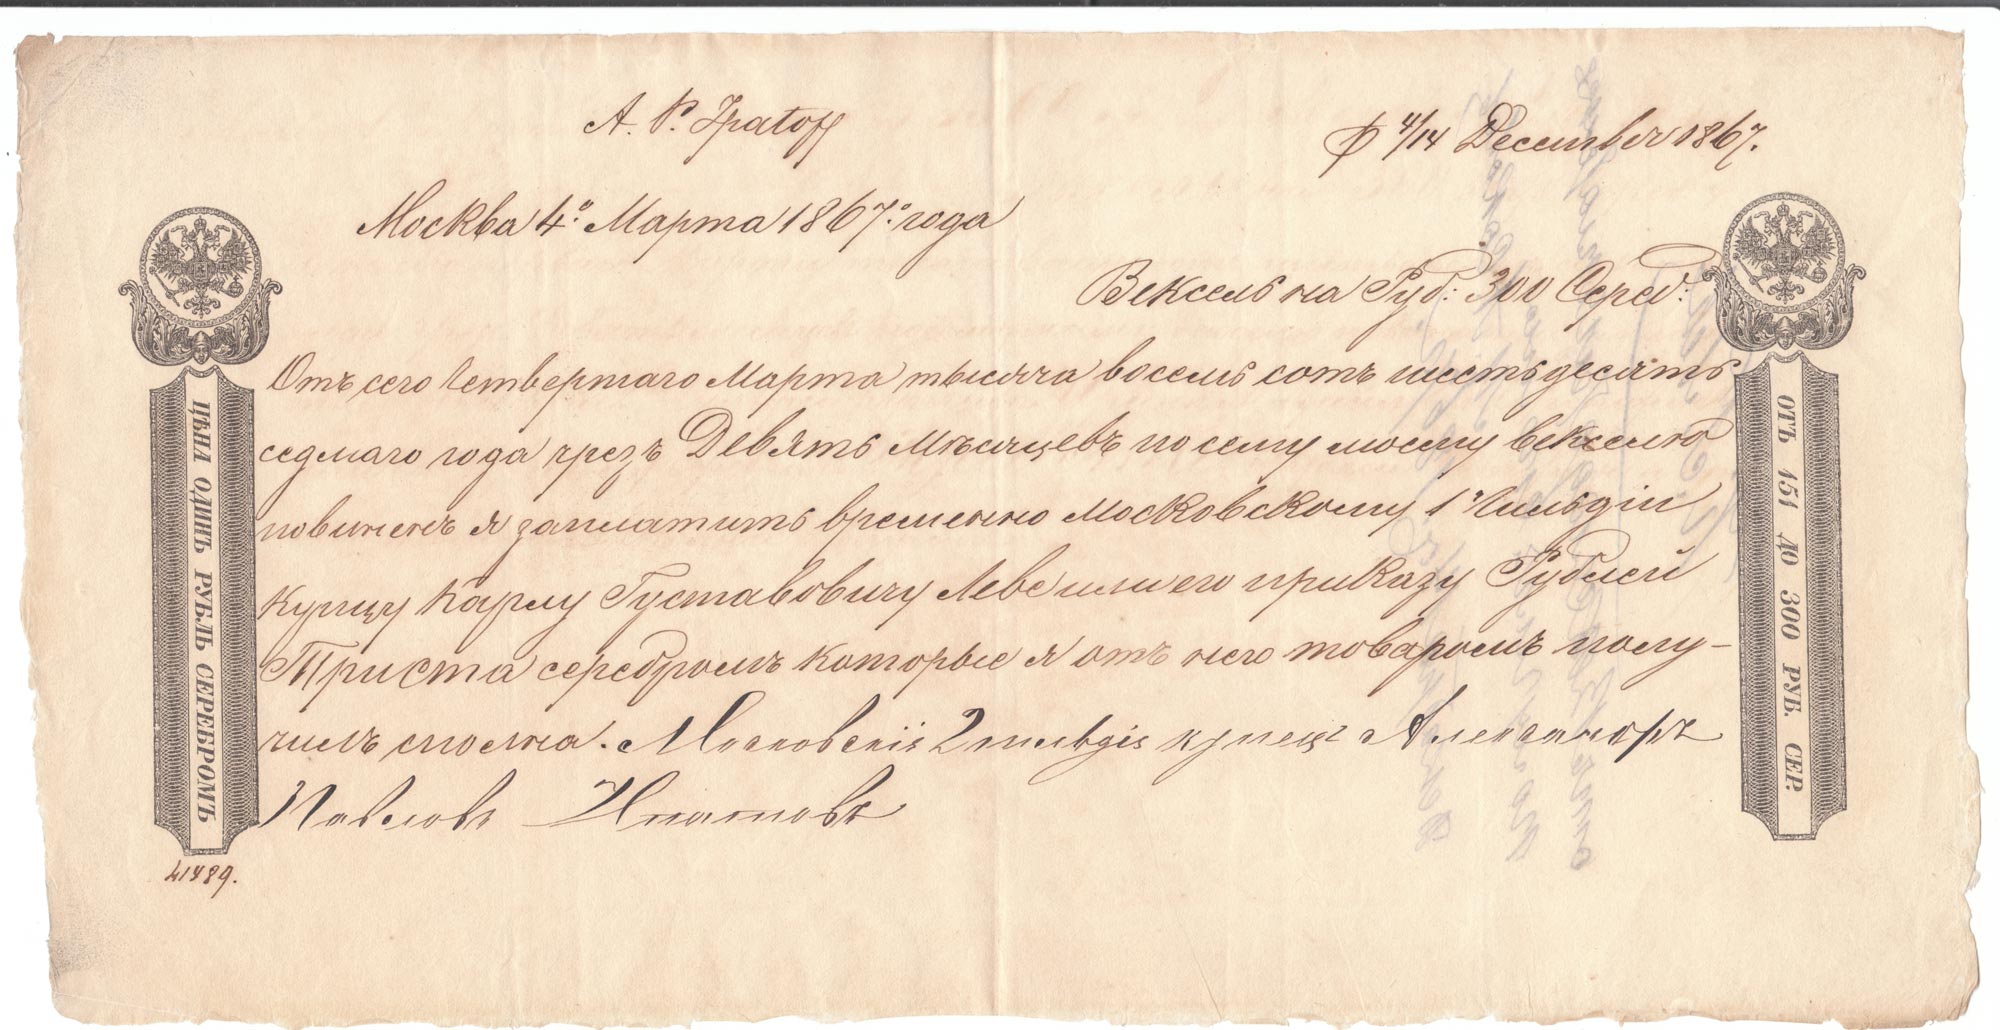 A. P. Ipatoff
4/14 December 1867.
Москва 4го Марта 1867го года
Вексель на Руб: 300 Сереб:
Отъ сего Четвертаго Марта тысяча восемь сотъ шестьдесятъ
седмаго года чрезъ Девять Мѣсяцевъ по сему моему векселю
повиненъ я заплатить временно Московскому 1й Гильдіи
купцу Карлу Густавовичу Леве или его приказу Рублей
Триста серебромъ которые я отъ него товаромъ полу-
чилъ сполна. Московскій 2 гильдіи купецъ Александръ
Павловъ Ипатовъ
ЦѢНА ОДИНЪ РУБЛЬ СЕРЕБРОМЪ
ОТЪ 151 ДО 300 РУБ. СЕР.
41489.